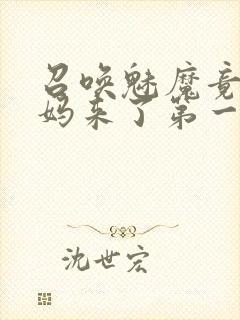 召唤魅魔竟
妈来了第一
沈世宏